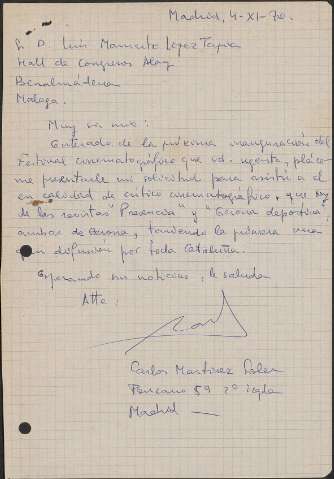 Madrid, 4-XI-70.
S. D. Luis Mamerto López Tapia
Hall de Congresos Alay
Benalmádena
Málaga.
Muy sr. mio:
Enterado de la próxima inauguración del
Festival cinematográfico que vd. regenta, pláce-
me presentarle mi solicitud para asistir a él
en calidad de crítico cinematográfico, que soy
de las revistas "Presencia" y "Gerona deportiva",
ambas de Gerona, teniendo la primera una
gran difusión por toda Cataluña.
Esperando sus noticias, le saluda
Atte:
Carlos Martínez Soler
59 2º izqda
Madrid